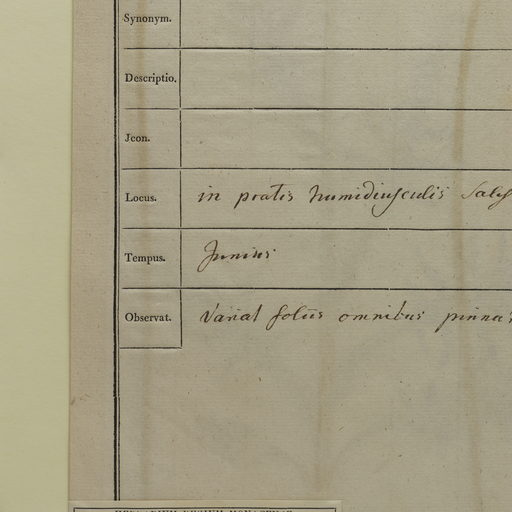 Synonym.
Descriptio.
Jcon.
Locus. in pratis humidiusculis
Tempus. Junius
Observat. Variat foliis omnibus